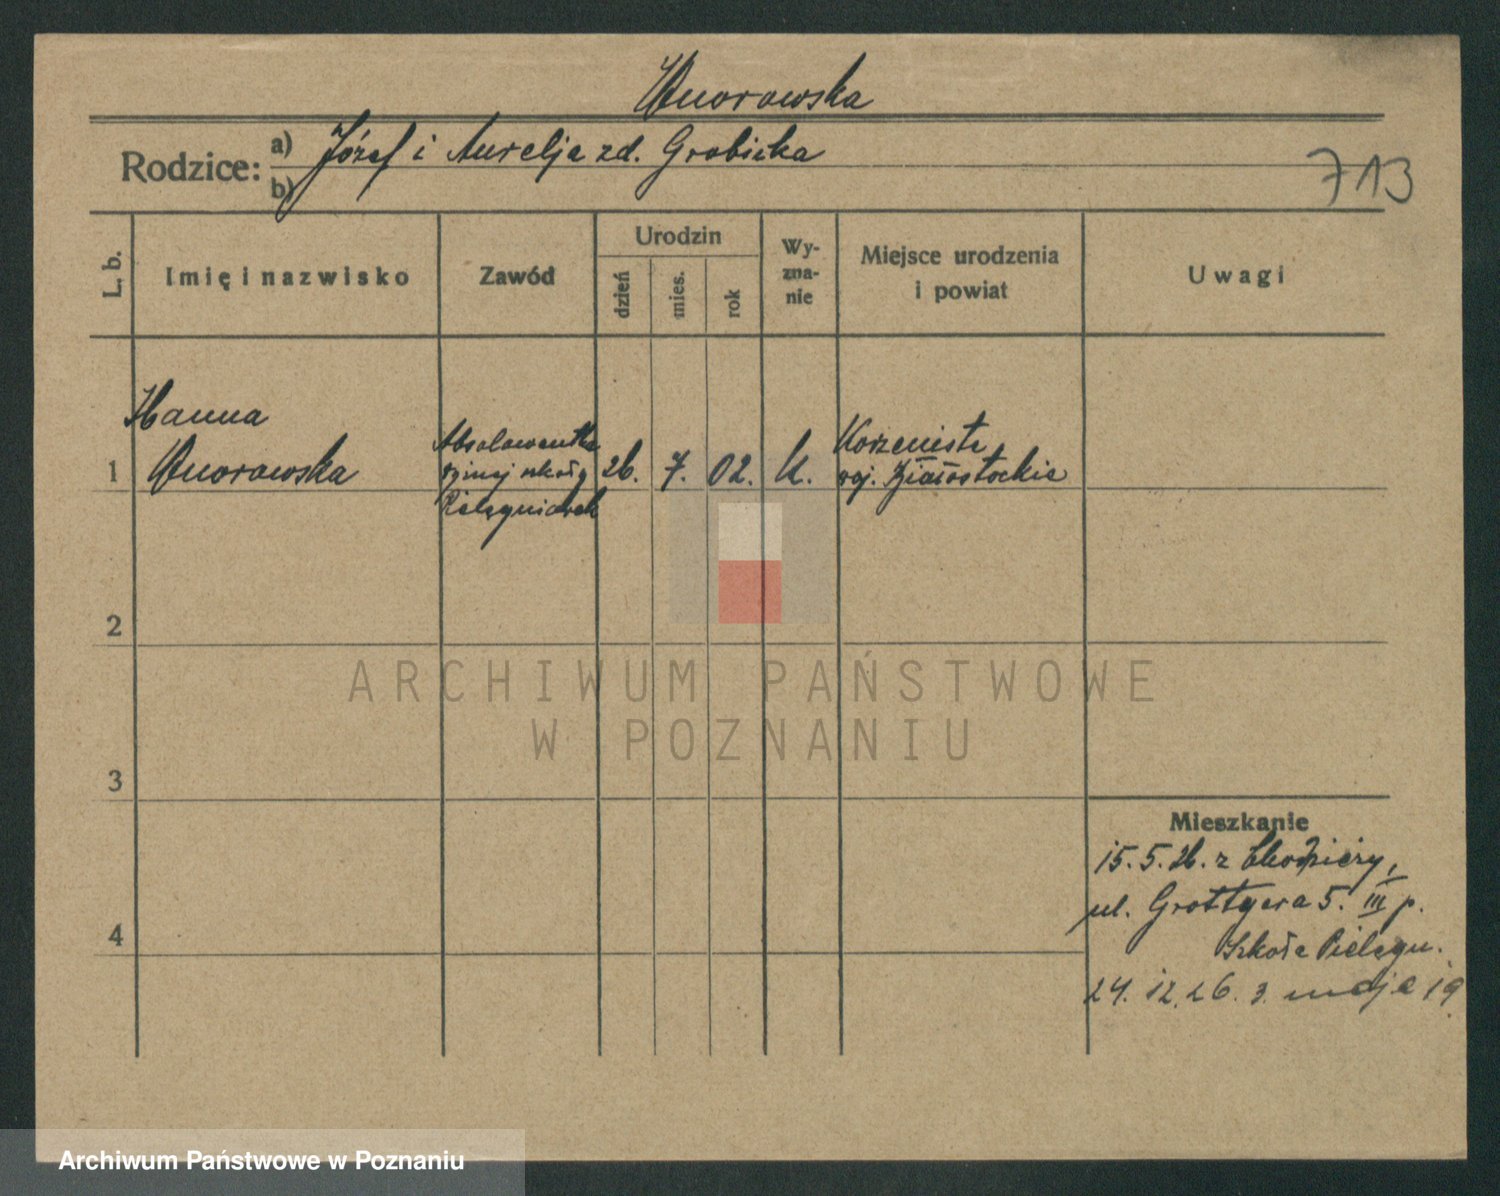 Wnorowska
Rodzice: a) Józef i Aurelja zd. Grabicka
b)
713
L. b.
Imię i nazwisko
Zawód
Urodzin
dzień
mies.
rok
Wy-
zna-
nie
Miejsce urodzenia
i powiat
Uwagi
Hanna
1 Wnorowska
Absolwentka
szkoły
Pielęgniarek
26. 7. 02. k.
Korzeniste
woj. Białostockie
2
3
4
ARCHIWUM PAŃSTWOWE
W POZNANIU
Mieszkanie
15. 5. 26. z
ul. Grottgera 5. III p.
Szkoła Pielęgn.
24. 12. 26. 3. maja 19
Archiwum Państwowe w Poznaniu